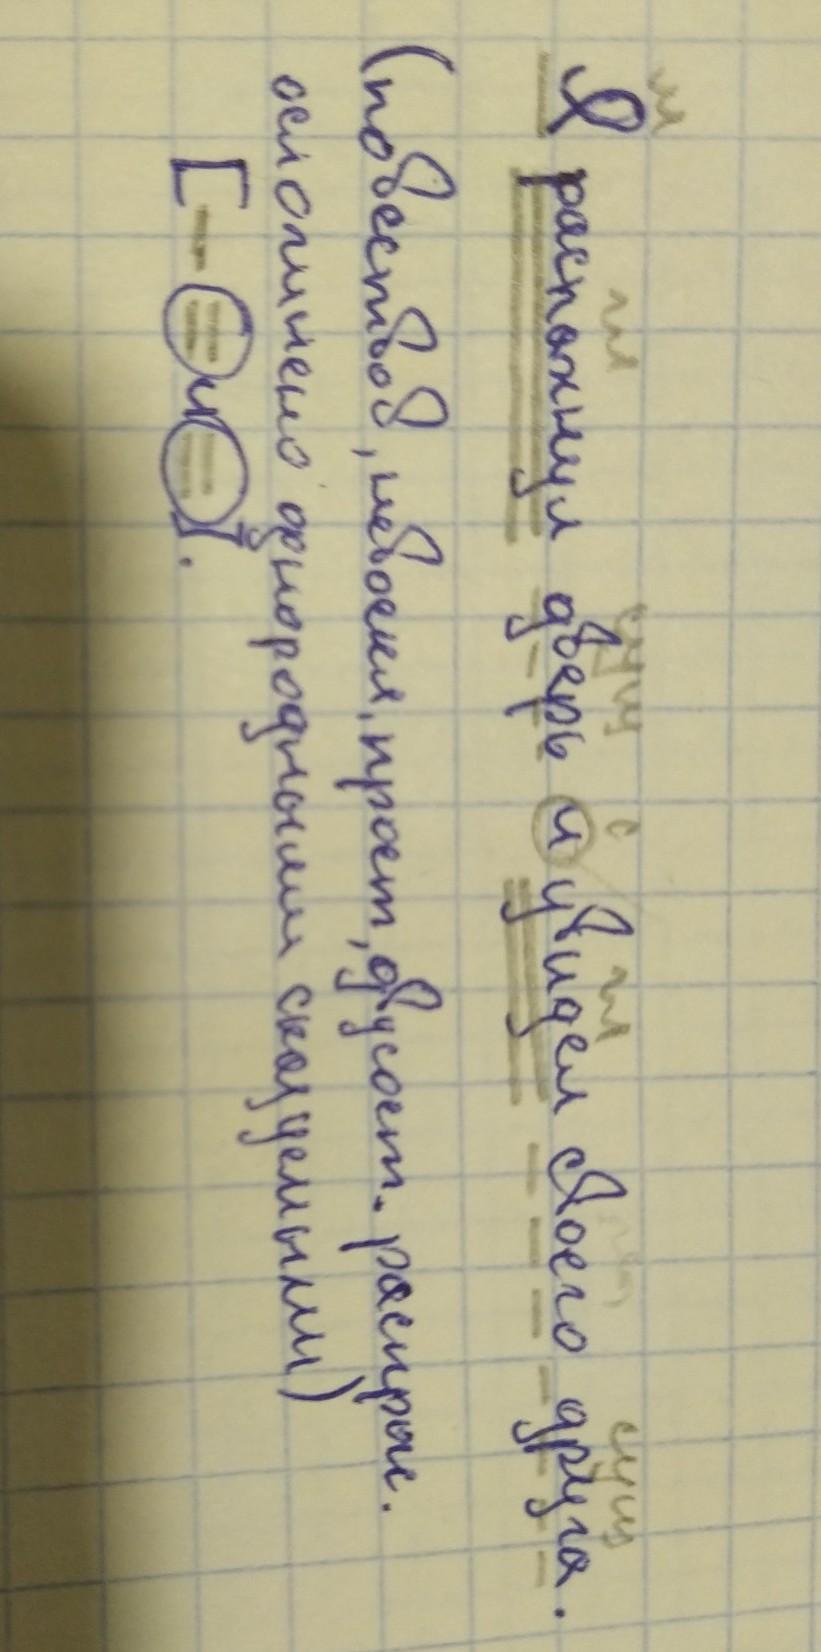 м гл сущ с гл сущ
Я распахнул дверь и увидел своего друга.
(повествов, невоскл, прост, двусост. распрос.
осложнено однородными сказуемыми)
[— = и =].